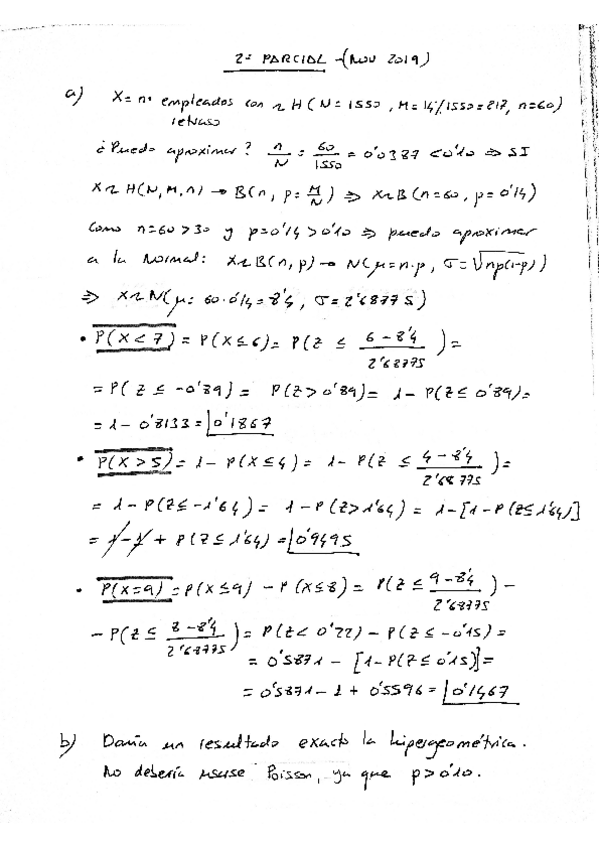 2º PARCIAL - (NOV 2019)
a) X = nº empleados con retraso ~ H(N=1550, M=14%1550=217, n=60)
¿Puedo aproximar? n/N = 60/1550 = 0'0387 < 0'10 ⇒ SI
X ~ H(N, M, n) → B(n, p = M/N) ⇒ X ~ B(n=60, p=0'14)
Como n=60>30 y p=0'14>0'10 ⇒ puedo aproximar
a la Normal: X ~ B(n, p) → N(μ=n·p, σ=√np(1-p))
⇒ X ~ N(μ = 60·0'14=8'4, σ=2'68775)
• P(X<7) = P(X≤6) = P(Z ≤ (6-8'4)/2'68775) =
= P(Z ≤ -0'89) = P(Z>0'89) = 1 - P(Z≤0'89) =
= 1 - 0'8133 = 0'1867
• P(X>5) = 1 - P(X≤4) = 1 - P(Z ≤ (4-8'4)/2'68775) =
= 1 - P(Z≤-1'64) = 1 - P(Z>1'64) = 1-[1-P(Z≤1'64)]
= 1-1 + P(Z≤1'64) = 0'9495
• P(X=9) = P(X≤9) - P(X≤8) = P(Z ≤ (9-8'4)/2'68775) -
- P(Z ≤ (8-8'4)/2'68775) = P(Z< 0'22) - P(Z≤ -0'15) =
= 0'5871 - [1-P(Z≤0'15)] =
= 0'5871 - 1 + 0'5596 = 0'1467
b) Daría un resultado exacto la hipergeométrica.
No debería usarse Poisson, ya que p>0'10.